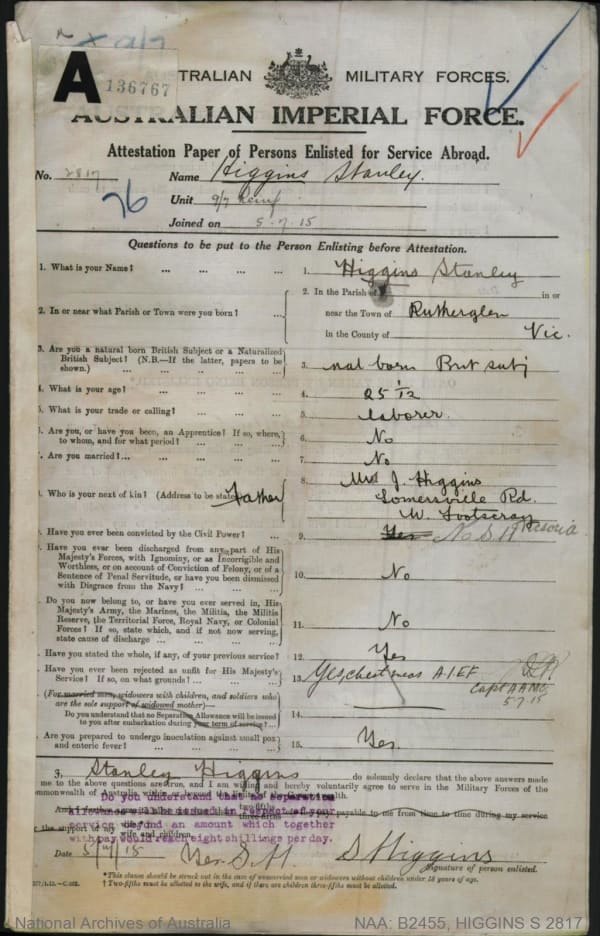 A 136767
TRALIAN MILITARY FORCES.
AUSTRALIAN IMPERIAL FORCE.
Attestation Paper of Persons Enlisted for Service Abroad.
No. 2817 Name Higgins Stanley.
26
Unit 9/7 Reinf
Joined on 5.7.15
Questions to be put to the Person Enlisting before Attestation.
1. What is your Name? ... ... ... ... 1. Higgins Stanley
2. In or near what Parish or Town were you born? ... ... 2. In the Parish of in or
near the Town of Rutherglen
in the County of Vic.
3. Are you a natural born British Subject or a Naturalized
British Subject? (N.B.—If the latter, papers to be
shown.) ... ... ... ... 3. nat born Brit subj
4. What is your age? ... ... ... ... 4. 25 1/12
5. What is your trade or calling? ... ... ... 5. laborer.
6. Are you, or have you been, an Apprentice? If so, where,
to whom, and for what period? ... ... ... 6. No
7. Are you married? ... ... ... ... 7. No
8. Who is your next of kin? (Address to be stated) Father 8. J. Higgins
Somersville Rd.
W. Footscray
Victoria
9. Have you ever been convicted by the Civil Power? ... 9. Yes No S.H
Have you ever been discharged from any part of His
Majesty's Forces, with Ignominy, or as Incorrigible and
Worthless, or on account of Conviction of Felony, or of a
Sentence of Penal Servitude, or have you been dismissed
with Disgrace from the Navy? ... ... ... 10. No
Do you now belong to, or have you ever served in, His
Majesty's Army, the Marines, the Militia, the Militia
Reserve, the Territorial Force, Royal Navy, or Colonial
Forces? If so, state which, and if not now serving,
state cause of discharge ... ... ... 11. No
Have you stated the whole, if any, of your previous service? 12. Yes
Have you ever been rejected as unfit for His Majesty's
Service? If so, on what grounds? ... ... 13. Yes, chest meas A.I.E.F
Capt AAMC
5.7.15
(For married men, widowers with children, and soldiers who
are the sole support of widowed mother)—
Do you understand that no Separation Allowance will be issued
to you after embarkation during your term of service? ... 14.
Are you prepared to undergo inoculation against small pox
and enteric fever? ... ... ... ... 15. Yes.
I, Stanley Higgins do solemnly declare that the above answers made
me to the above questions are true, and I am willing and hereby voluntarily agree to serve in the Military Forces of the
Do you understand that no separation
allowance will be issued in respect of your
service beyond an amount which together
with pay would reach eight shillings per day.
payable to me from time to time during my service
the support of my wife
wife and children.
Date 5/7/15 Yes S.H. S Higgins
Signature of person enlisted.
*This clause should be struck out in the case of unmarried men or widowers without children under 18 years of age.
†Two-fifths must be allotted to the wife, and if there are children three-fifths must be allotted.
National Archives of Australia NAA: B2455, HIGGINS S 2817